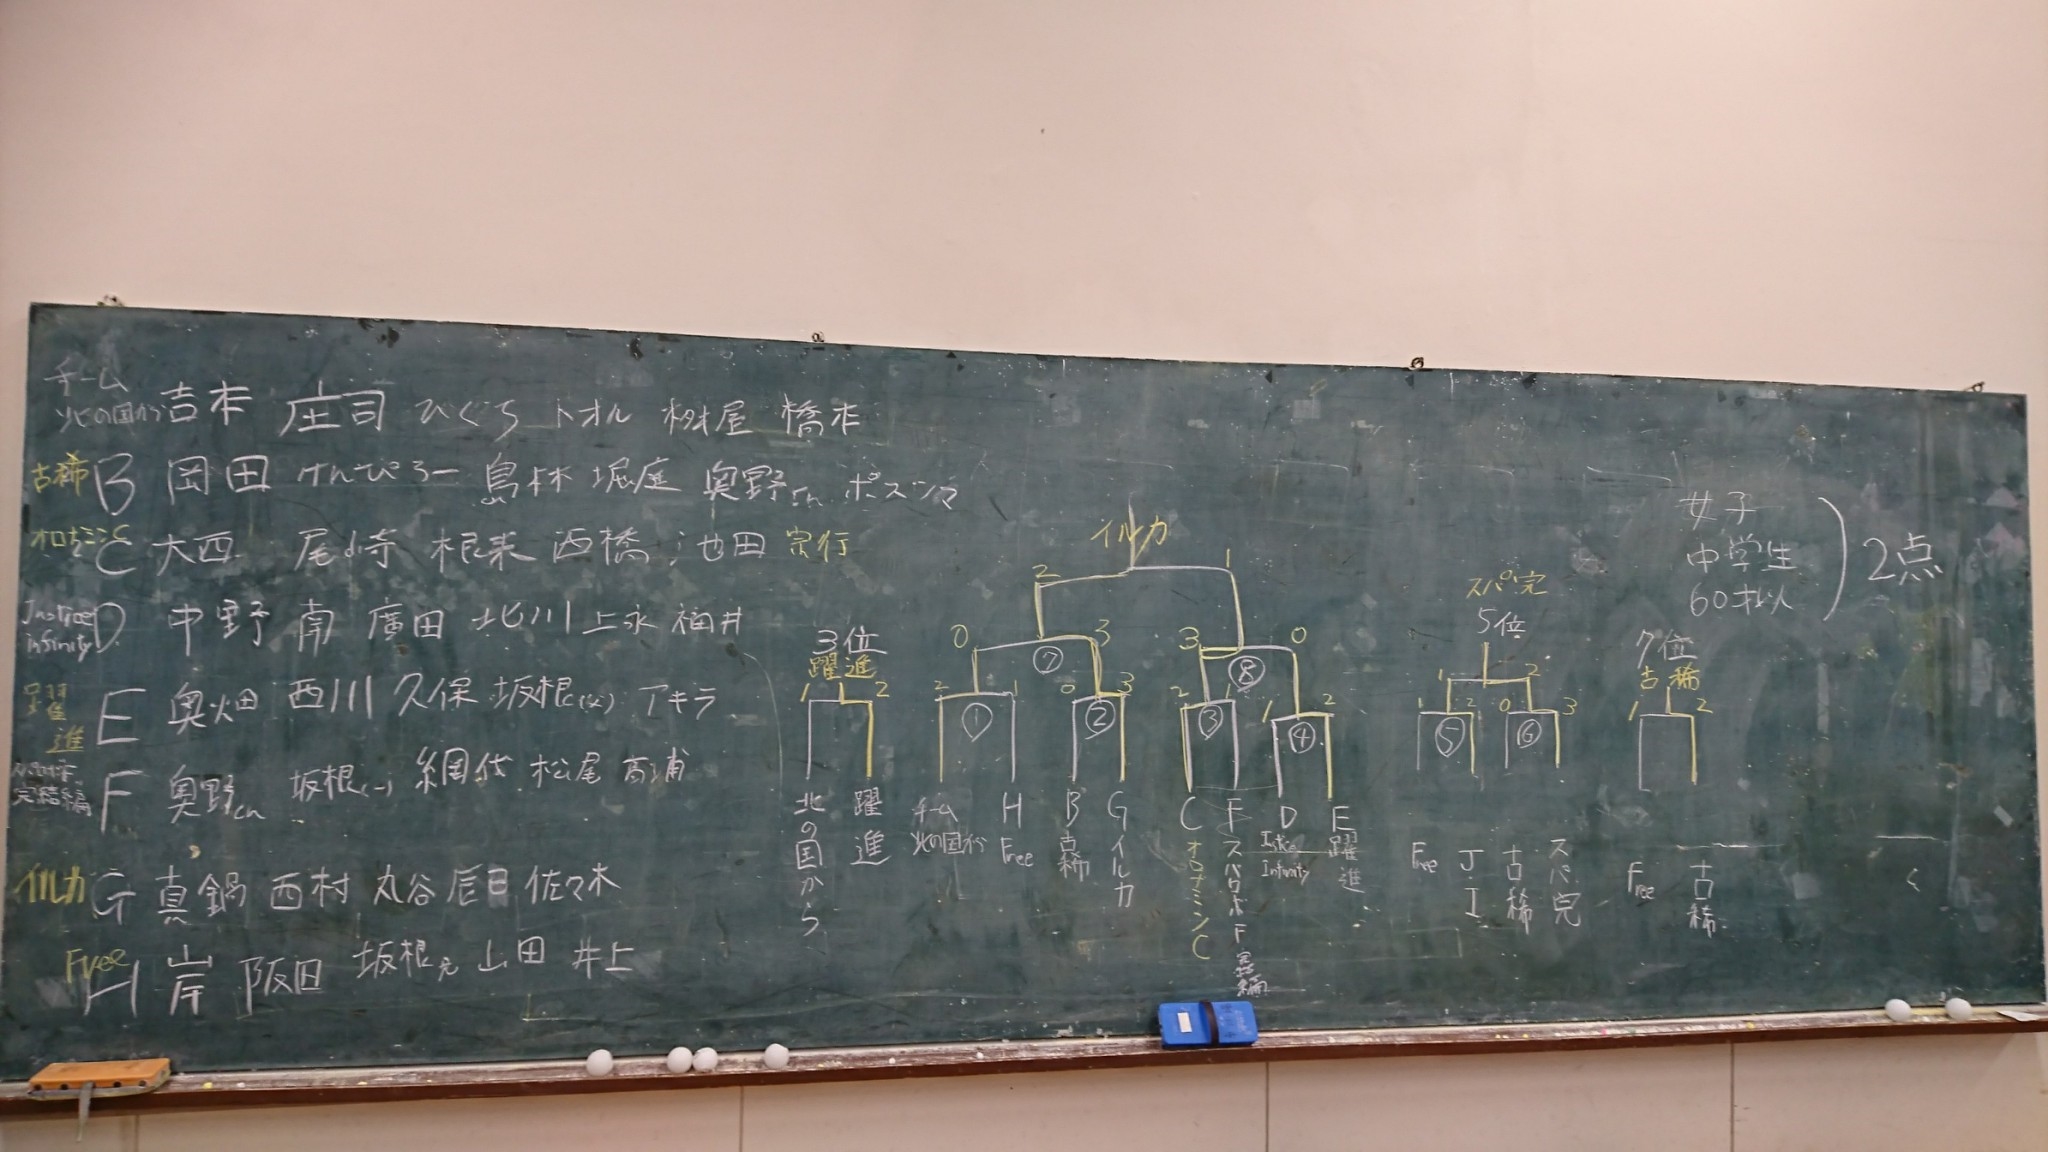 チーム
北の国から 吉本 庄司 ひぐち トオル 桝屋 橋本
古稀 B 岡田 けんぴろー 島林 堀庭 奥野
オロナミンC C 大西 尾崎 根来 西橋 池田 宗行
Justice infinity D 中野 南 廣田 北川 上永 福井
躍進 E 奥畑 西川 久保 坂根(父) アキラ
完結編 F 奥野 坂根(一) 網代 松尾 高浦
イルカ G 真鍋 西村 丸谷 辰巳 佐々木
Free H 岸 阪田 坂根 山田 井上
3位
躍進
1 2
北の国から
躍進
イルカ
2 1
0 3 3 0
⑦ ⑧
2 1 0 3 2 1 1 2
① ② ③ ④
チーム北の国から
H Free
B 古稀
G イルカ
C オロナミンC
F スパロボF 完結編
D Infinity
E 躍進
スパ完
5位
1 2
1 2 0 3
⑤ ⑥
Free
J.I
古稀
スパ完
7位
古稀
1 2
Free
古稀
女子
中学生
60才以
2点